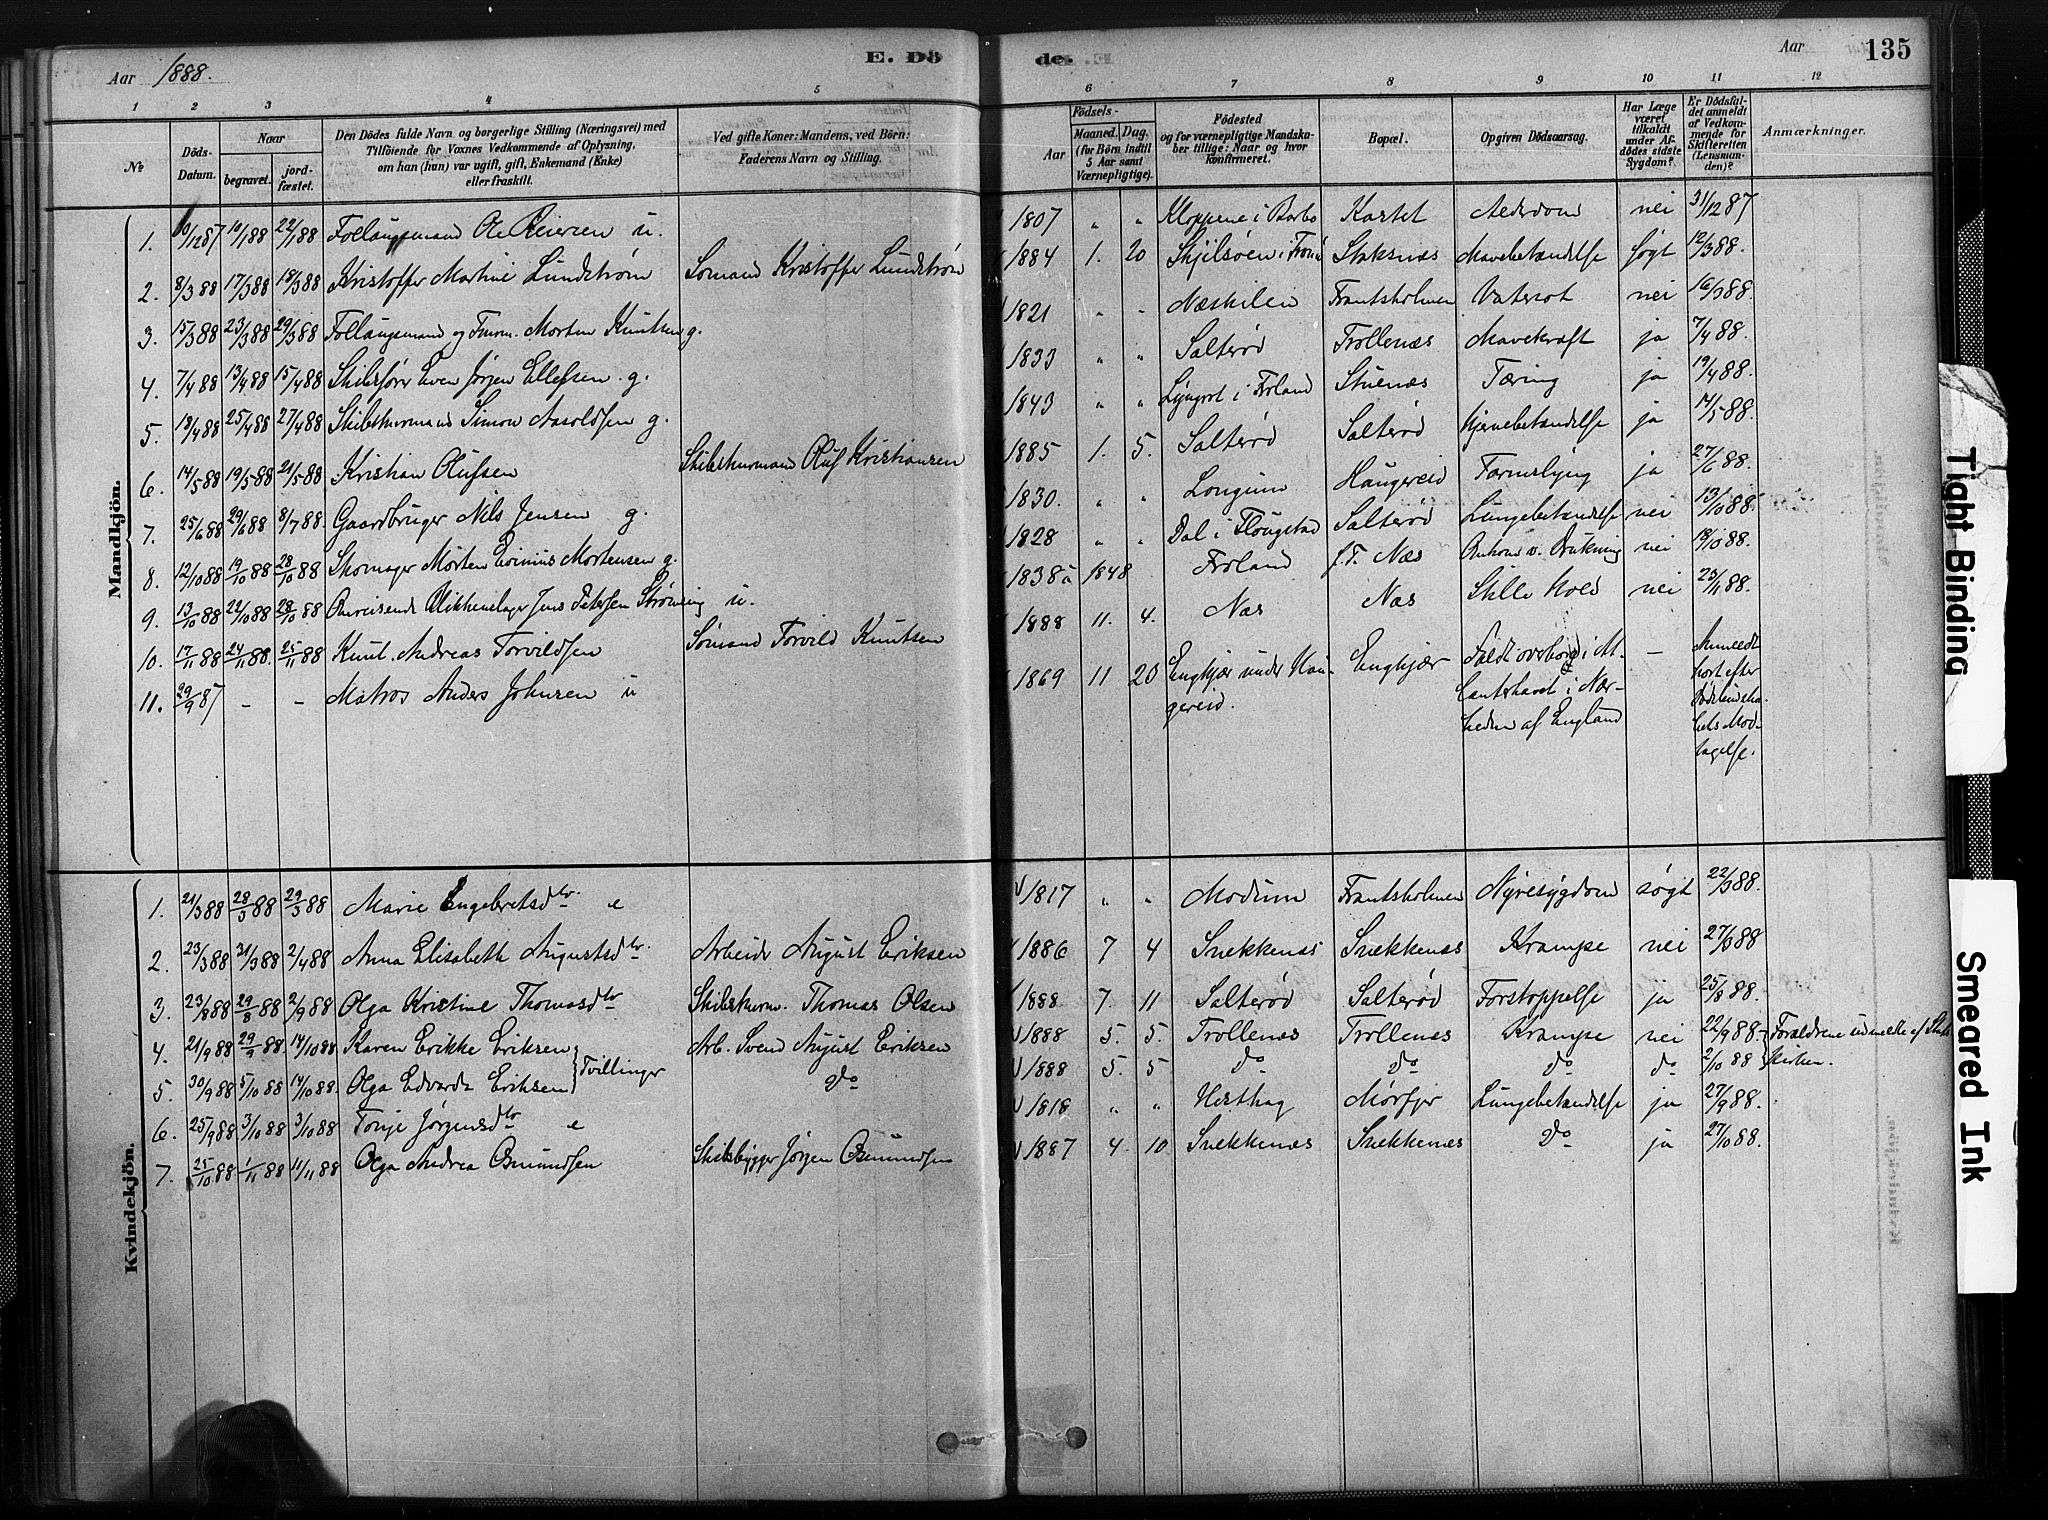 Aar 1888. E. Dö
de. Aar 135
1 2 3 4 5
6 7 8 9 10 11 12
No Döds-Datum. Naar begravet. jordfæstet. Den Dödes fulde Navn og borgerlige Stilling (Næringsvei) med Tilföiende for Voxnes Vedkommende af Oplysning, om han (hun) var ugift, gift, Enkemand (Enke) eller fraskilt. Ved gifte Koner: Mandens, ved Börn: Faderens Navn og Stilling.
Födsels- Aar Maaned. Dag. (for Börn indtil 5 Aar samt Værnepligtige). Födested og for værnepligtige Mandskaber tillige: Naar og hvor Konfirmeret. Bopæl. Opgiven Dödsaarsag. Har Læge været tilkaldt under Afdödes sidste Sygdom? Er Dödsfaldet anmeldt af Vedkommende for Skifteretten (Lensmanden)? Anmærkninger.
Mandkjön.
1. 10/12 87 10/1 88 22/1 88 Follaugsmand Ole Reiersen u. 1807 " " Kloppene i Barbo Kastet Alderdom nei 31/12 87
2. 8/3 88 17/3 88 18/3 88 Kristoffer Martini Lundstrøm Sømand Kristoffer Lundstrøm 1884 1. 20 Skjilsøen i Trom Staksnæs Mavebetændelse søgt 12/3 88.
3. 15/3 88 23/3 88 29/3 88 Follaugsmand og Turm. Morten Knutsen g. 1821 " " Næskilen Frantsholmen Vatersot nei 16/3 88.
4. 7/4 88 13/4 88 15/4 88 Skibsfører Even Jørgen Ellefsen g. 1833 " " Salterød Trollenæs Mavekræft ja 7/4 88.
5. 18/4 88 25/4 88 27/4 88 Skibsturmand Simon Aasoldsen g. 1843 " " Lyngrot i Froland Stuenæs Tæring ja 19/4 88.
6. 14/5 88 19/5 88 21/5 88 Kristian Olufsen Skibsturmand Oluf Kristiansen 1885 1. 5. Salterød Salterød Hjernebetændelse ja 14/5 88.
7. 25/6 88 29/6 88 8/7 88. Gaardbruger Nils Jensen g. 1830. " " Longum Haugereid Tarmslyng ja 27/6 88.
8. 12/10 88 19/10 88 28/10 88 Skomager Morten Evinius Mortensen g. 1828 " " Dal i Flougstad Salterød Lungebetændelse nei 13/10 88
9. 13/10 88 22/10 88 28/10 88 Omreisende Blikkenslager Jens Petersen Strømsing u. 1838 à 1848 Froland f.T. Næs Ankom v. Drukning nei 18/10 88.
10. 17/11 88 24/11 88. 25/11 88 Knut Andreas Torvildsen Sømand Torvild Knutsen 1888 11. 4. Næs Næs Stille Hold nei 23/11 88.
11. 29/9 87 - - Matros Anders Johnsen u 1869 11 20 Engkjær under Haugereid. Engkjær Faldt overbord i Atlanterhavet i Nærheden af England - Anmeldt kort efter Dødsbudskabets Modtagelse.
Kvindekjön.
1. 21/3 88 28/3 88 29/3 88 Marie Engebretsdtr e 1817 " " Modum Frantsholmen Nyresygdom søgt 22/3 88.
2. 23/3 88 31/3 88 2/4 88 Anna Elisabeth Augustsdtr. Arbeider August Eriksen 1886 7 4 Snekkenæs Snekkenæs Krampe nei 27/3 88
3. 23/8 88 29/8 88 2/9 88 Olga Kristine Thomasdtr Skibsturm. Thomas Olsen 1888 7. 11 Salterød Salterød Forstoppelse ja 25/8 88.
4. 21/9 88 29/9 88. 14/10 88 Karen Erikke Eriksen Arb. Svend August Eriksen 1888 5. 5. Trollenæs Trollenæs Krampe nei 22/9 88 Forældrene udmeldt af Statskirken.
5. 30/9 88 5/10 88 14/10 88 Olga Edvarda Eriksen } Tvillinger do 1888 5. 5 do do do do 2/10 88
6. 25/9 88 3/10 88 3/10 88 Tonje Jørgensdtr e 1818 " " Hesthag Mørfjær Lungebetændelse ja 27/9 88.
7. 25/10 88 1/11 88 11/11 88 Olga Andrea Osmundsen Skibsbygger Jørgen Osmundsen 1887 4. 10 Snekkenæs Snekkenæs do ja 27/10 88.
Tight Binding
Smeared Ink